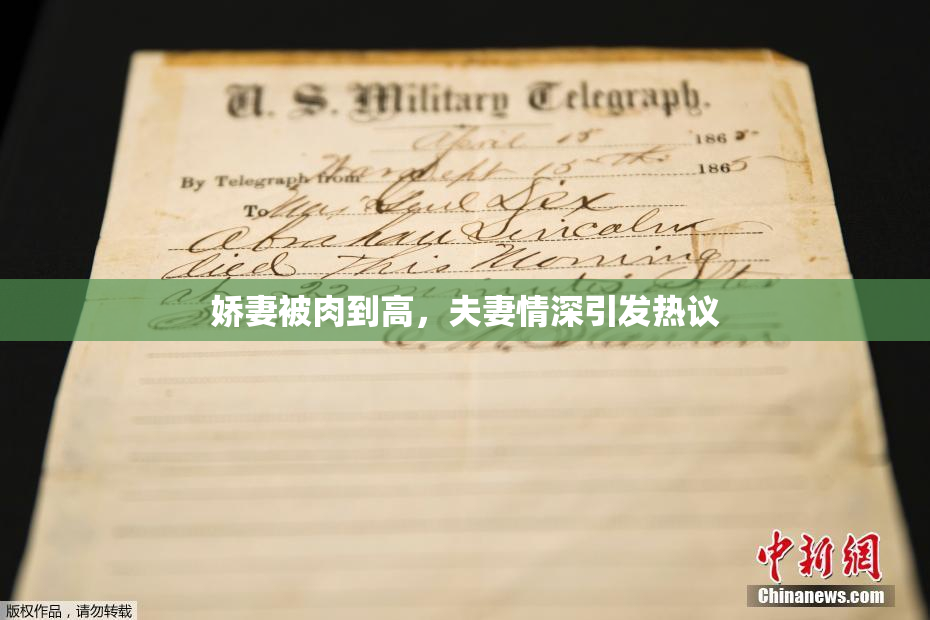 U. S. Military Telegraph.
April 15 1865
By Telegraph from War Dept 15th 1865
To Maj Genl Dix
Abraham Lincoln
died This Morning
at 22 minutes after
娇妻被肉到高，夫妻情深引发热议
E. M. Stanton
中新网
Chinanews.com
版权作品，请勿转载